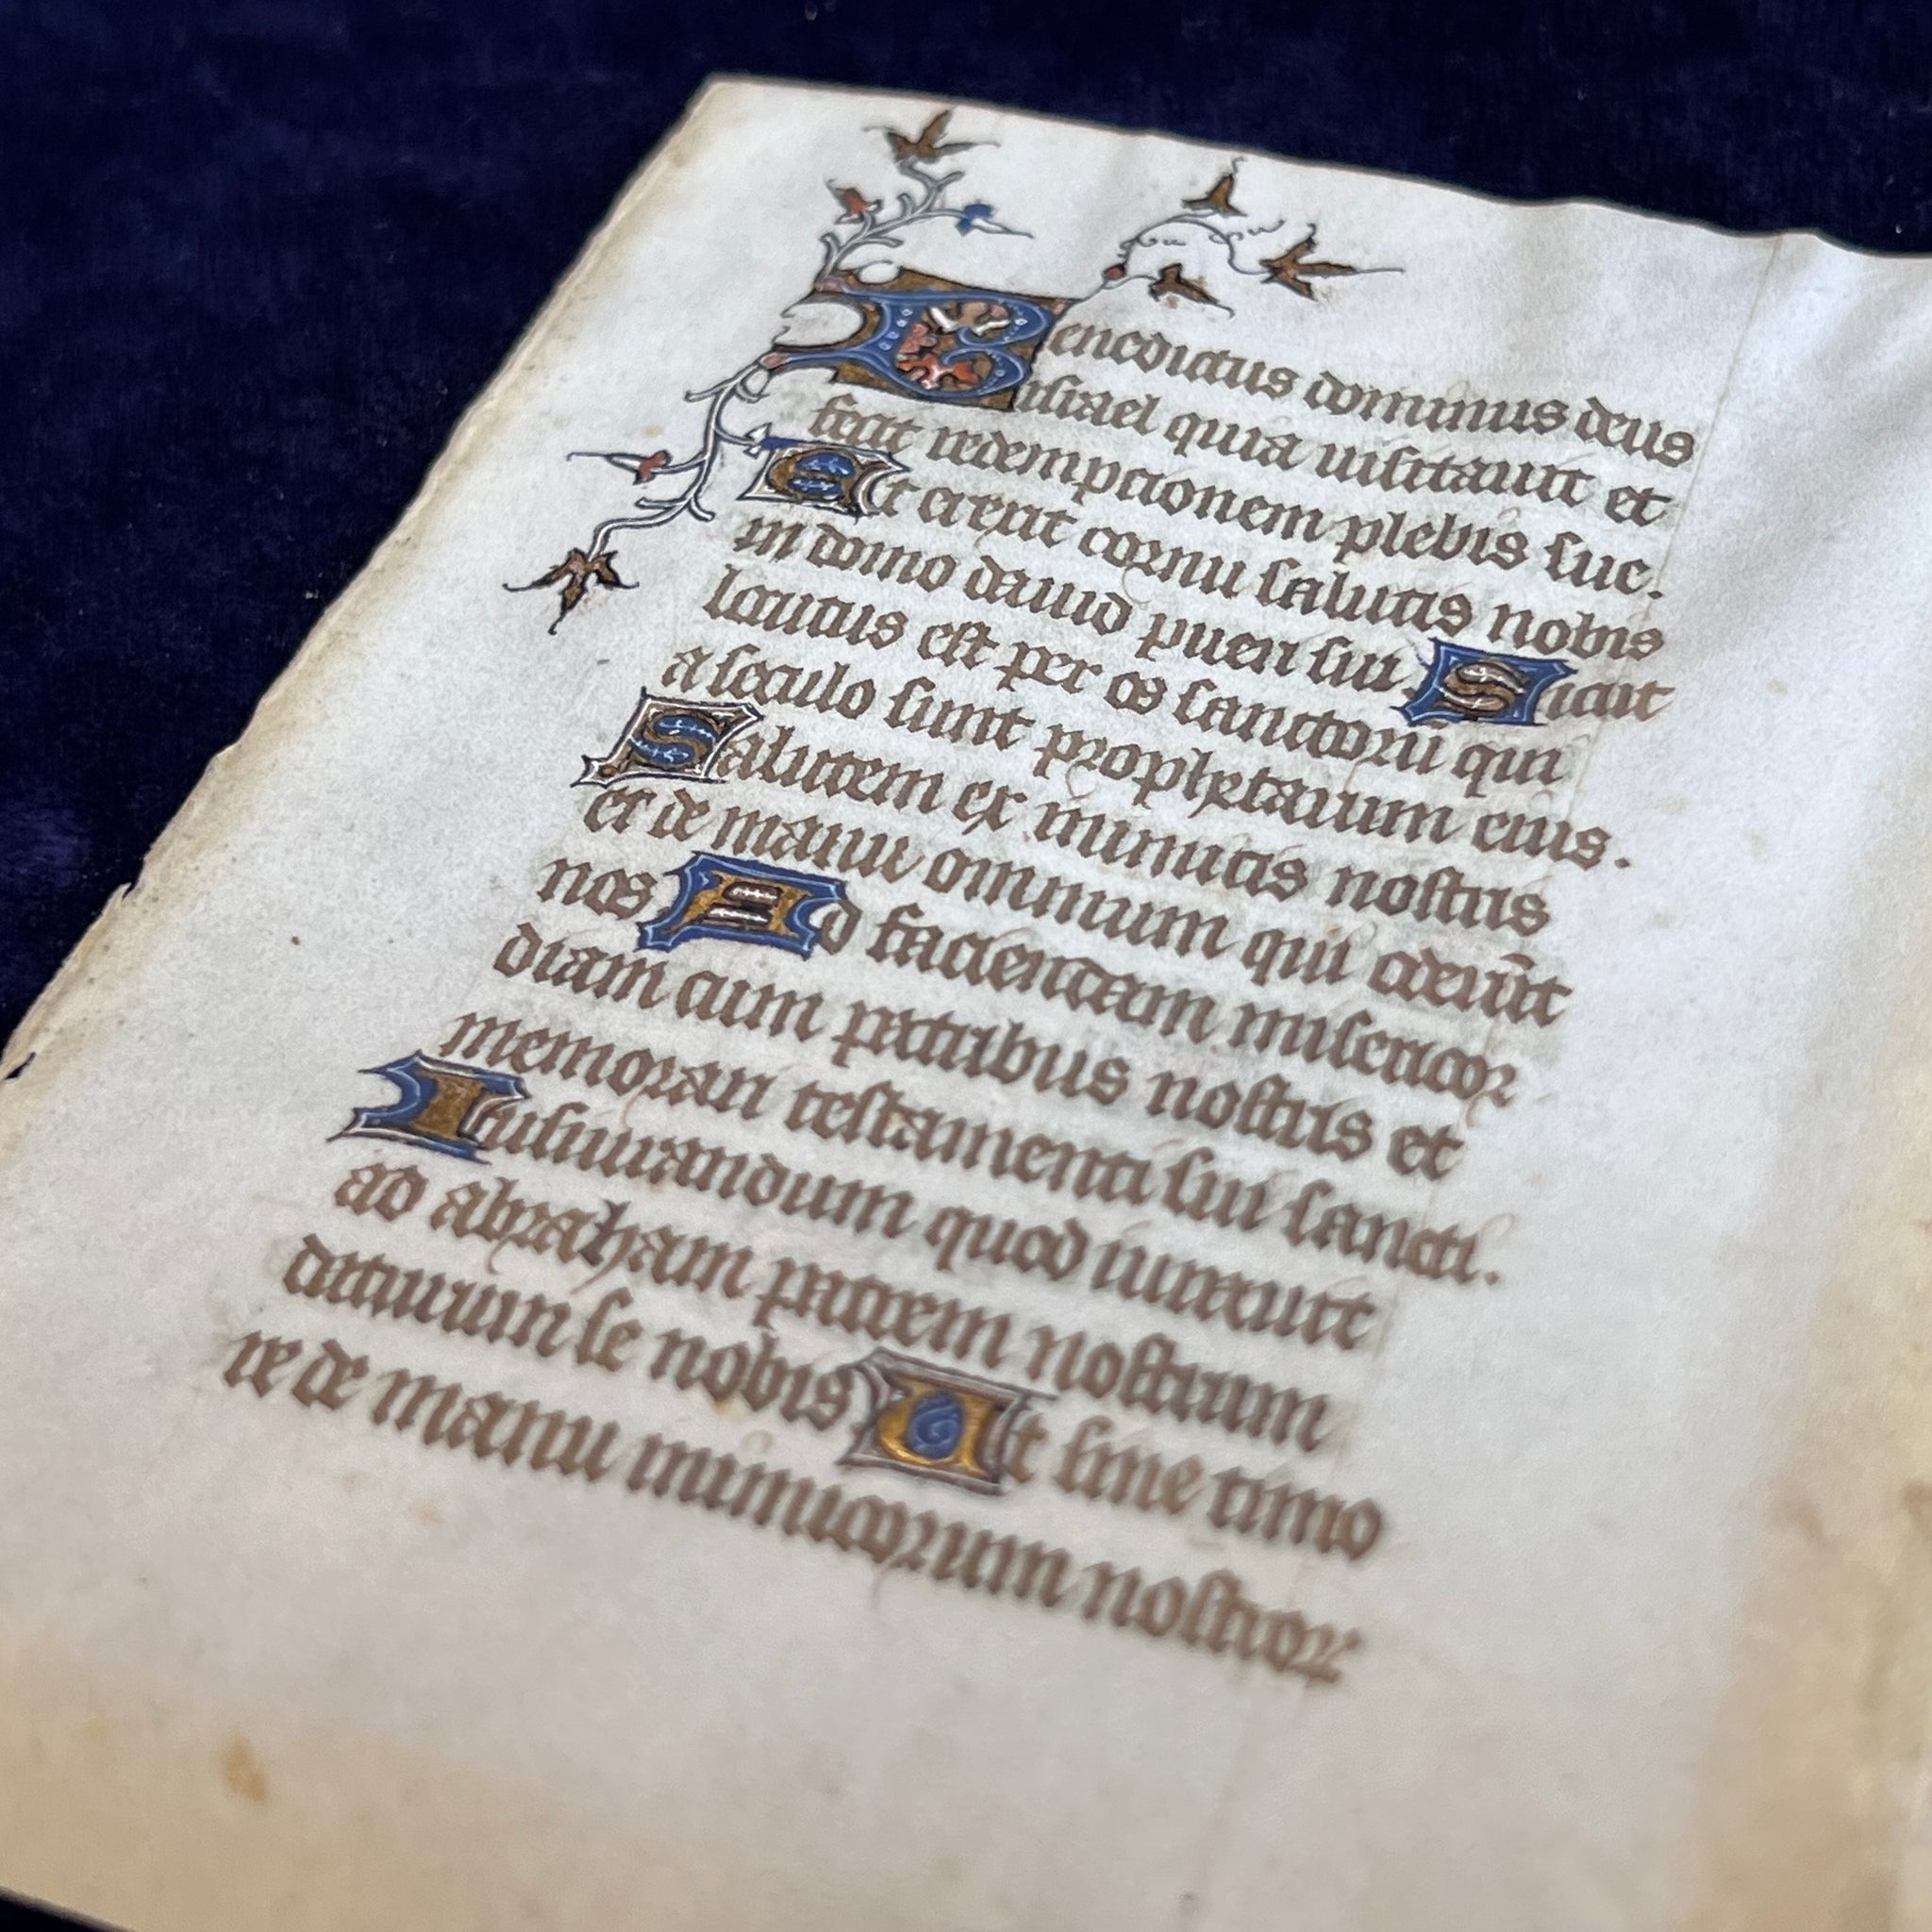 Benedictus dominus deus
israel quia uisitauit et
fecit redempcionem plebis sue.
Et erexit cornu salutis nobis
in domo dauid pueri sui. Sicut
locutus est per os sanctorū qui
a seculo sunt prophetarum eius.
Salutem ex inimicis nostris
et de manu omnium qui oderūt
nos Ad faciendam misericor
diam cum patribus nostris et
memorari testamenti sui sancti.
Iusiurandum quod iurauit
ad abraham patrem nostrum
daturum se nobis Ut sine timo
re de manu inimicorum nostror